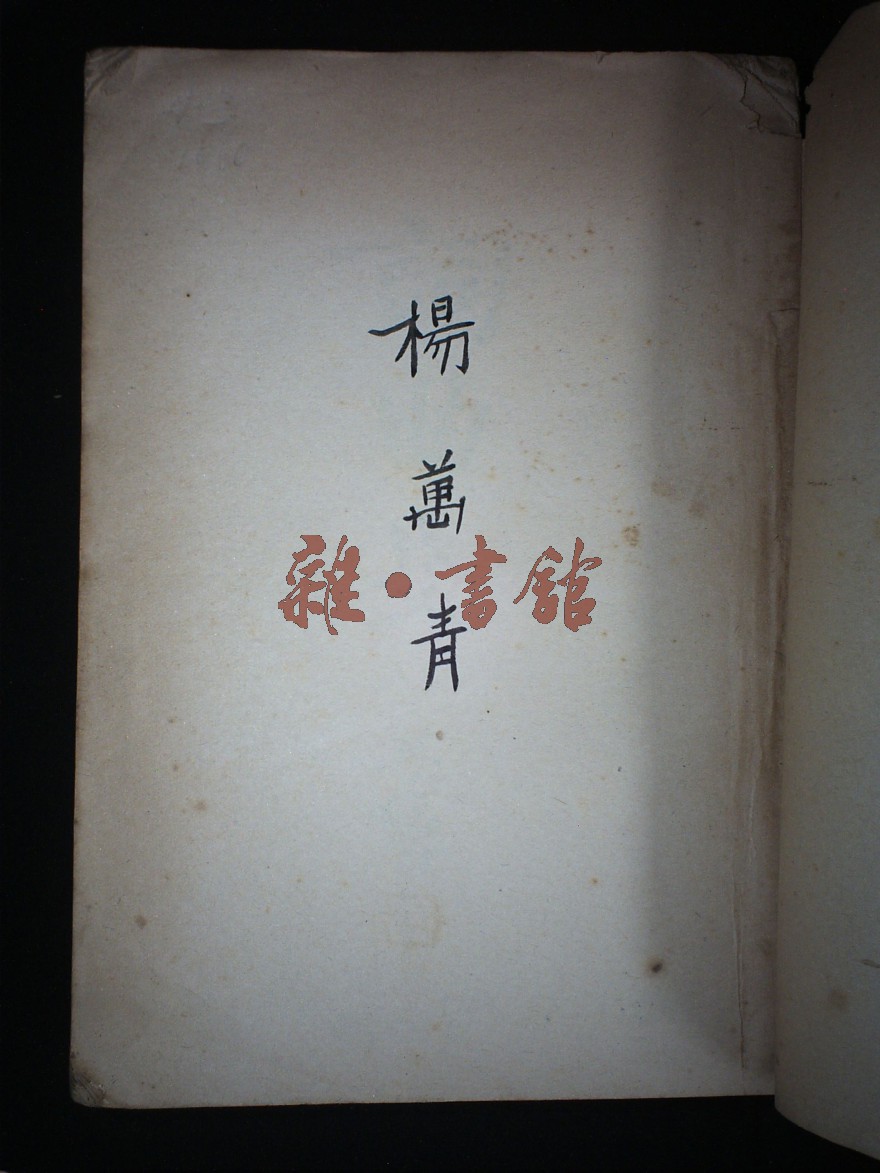 楊萬青
雜·書館